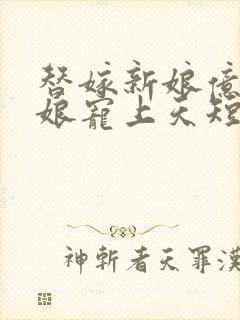 替嫁新娘億
娘寵上天短
神斬者天罪漢